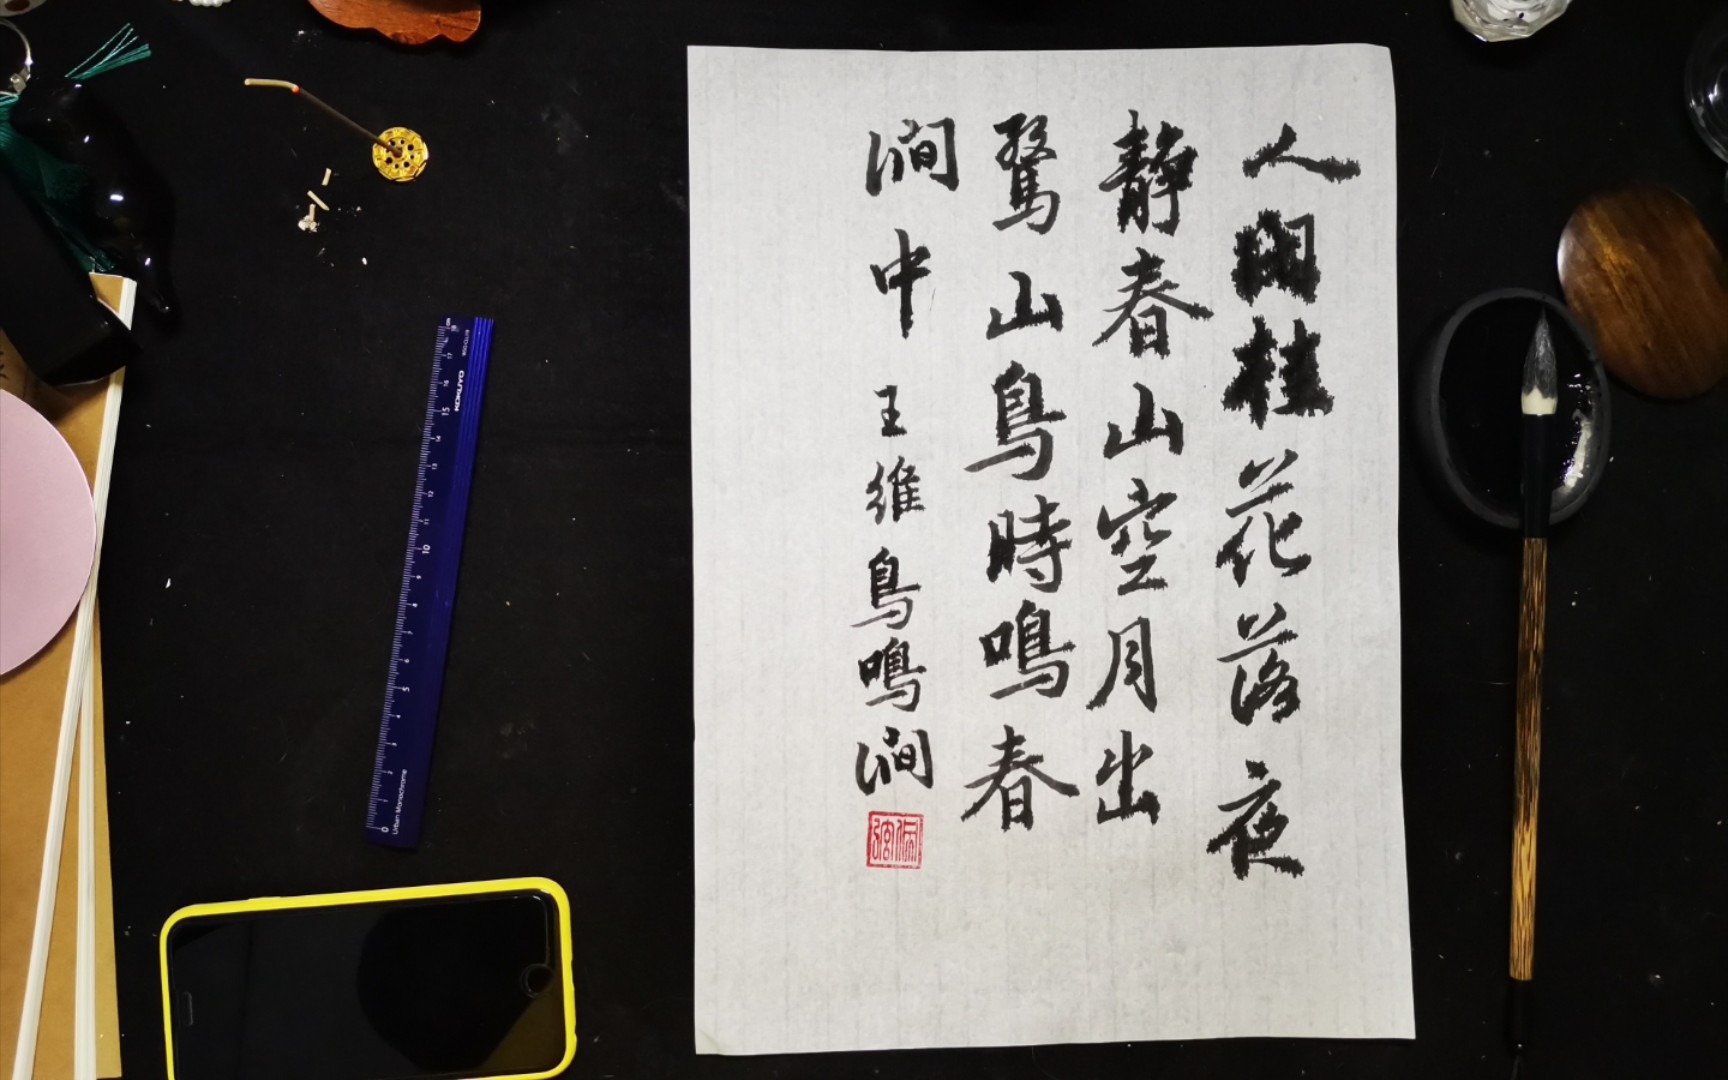 人閒桂花落夜
静春山空月出
驚山鳥時鳴春
澗中 王維鳥鳴澗
KOKUYO
Urban Monochrome